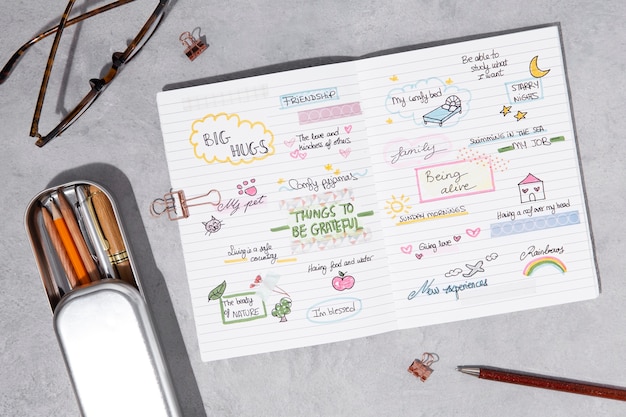 FRIENDSHIP
BIG
HUGS
The love and
kindness of others
Comfy pyjamas
My pet
THINGS TO
BE GRATEFUL
Living in a safe
country
Having food and water
The beauty
of NATURE
I'm blessed
Be able to
study what
I want
My comfy bed
STARRY
NIGHTS
family
Swimming in the sea
MY JOB
Being
alive
SUNDAY MORNINGS
Having a roof over my head
Giving love
Rainbows
New experiences